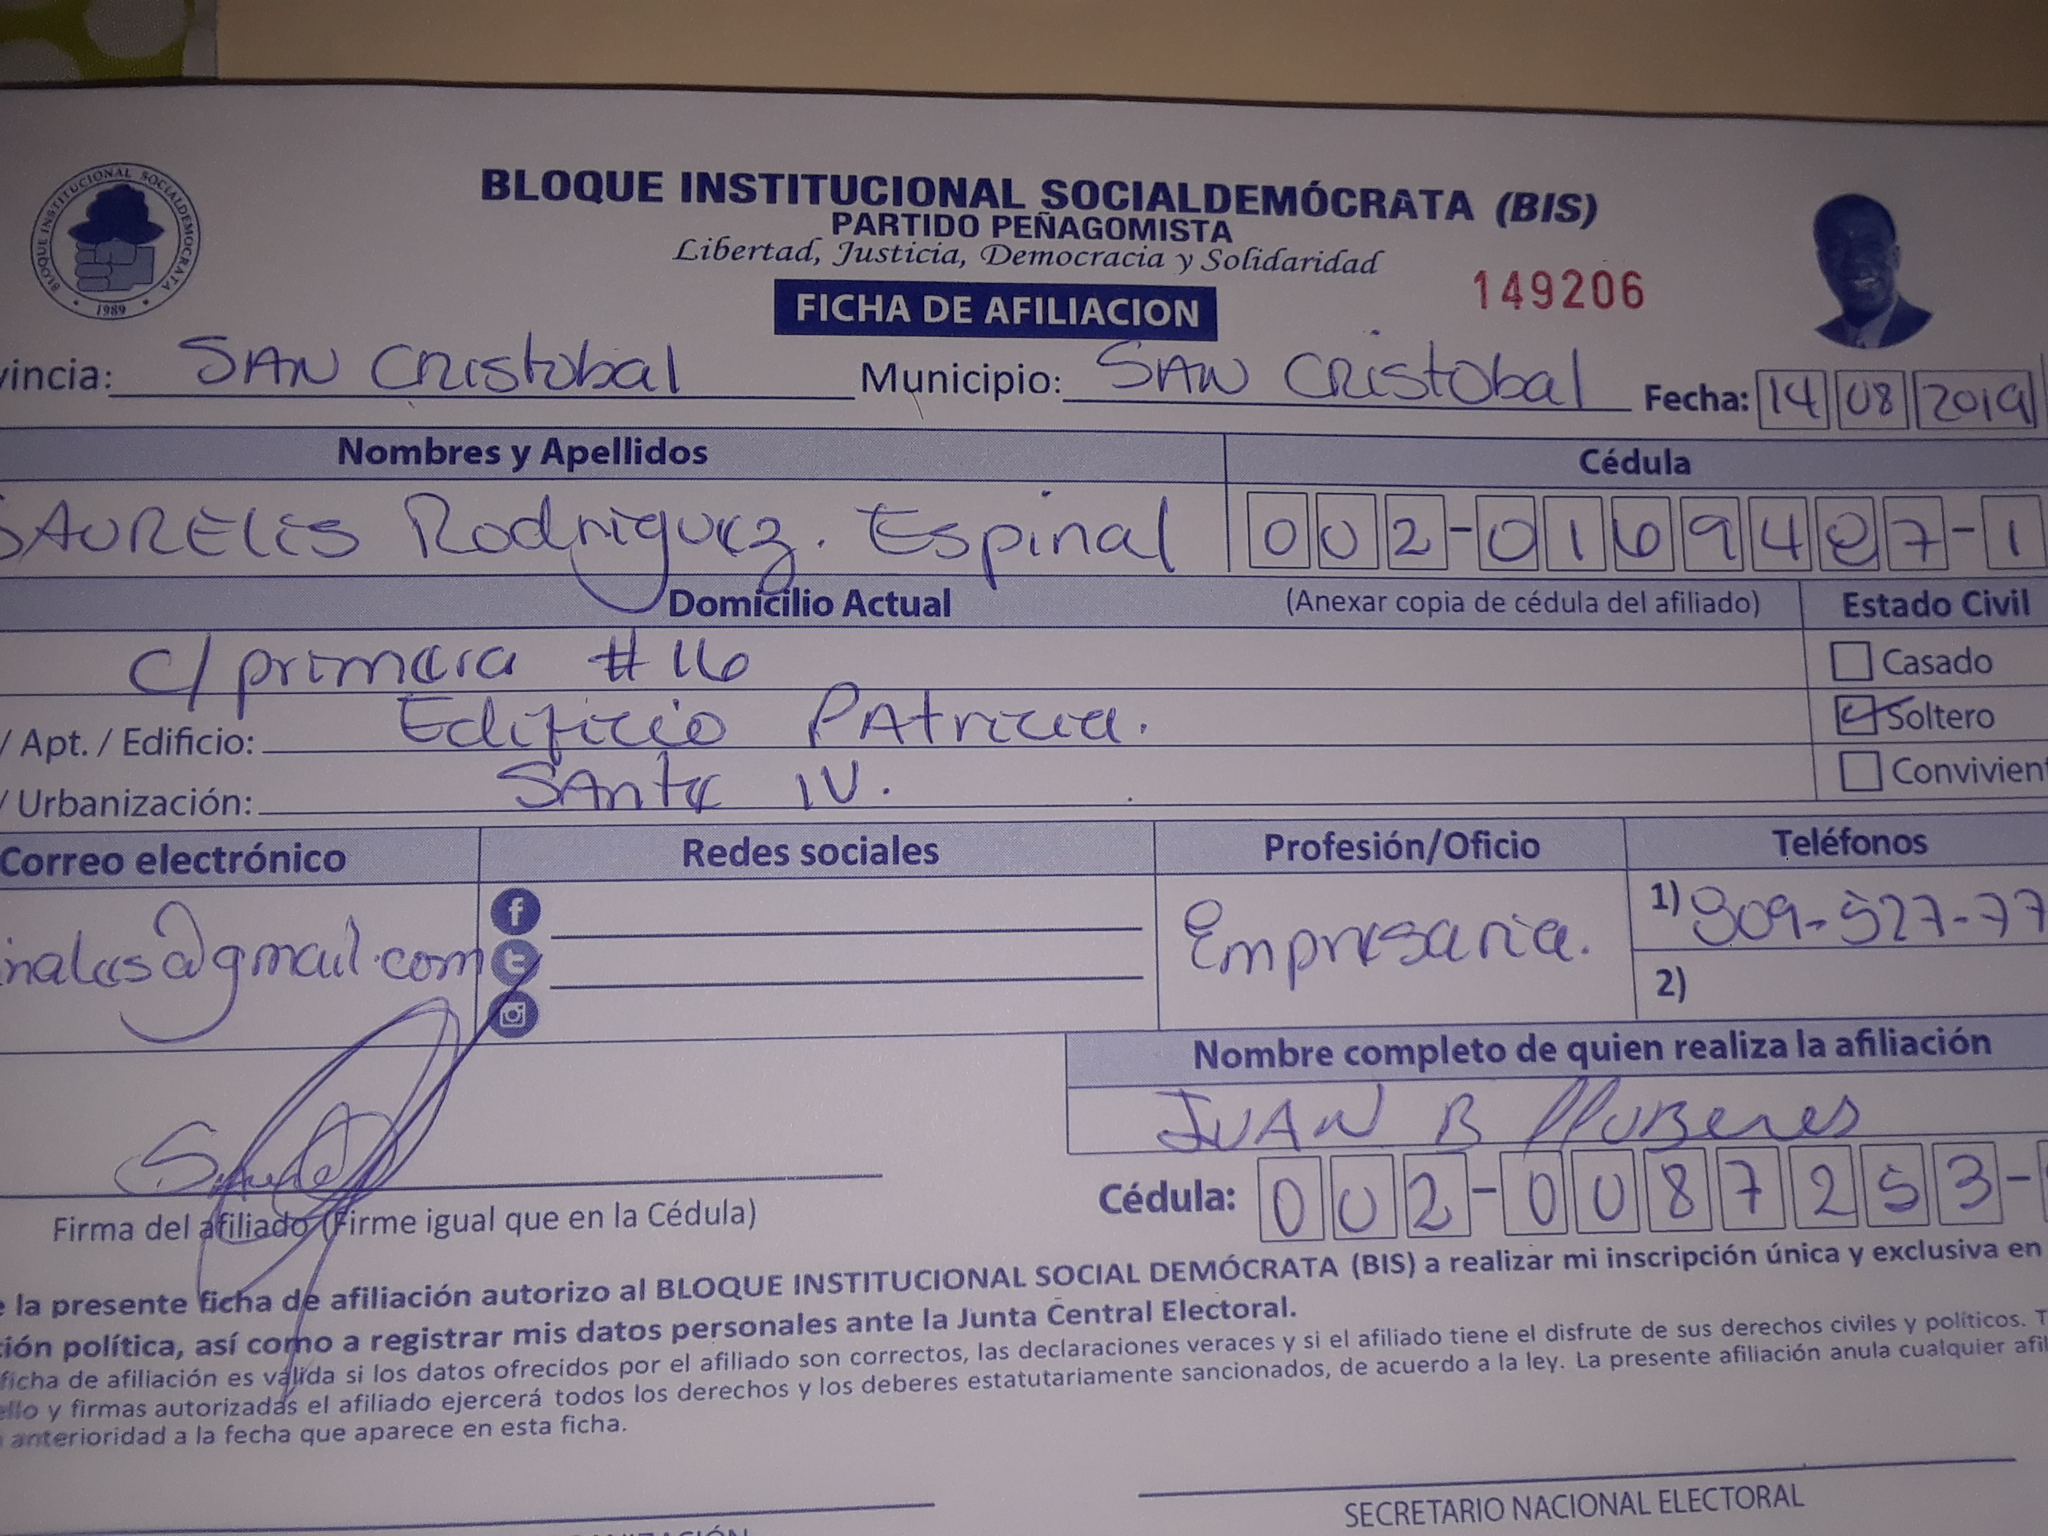 BLOQUE INSTITUCIONAL SOCIALDEMÓCRATA
1989
BLOQUE INSTITUCIONAL SOCIALDEMÓCRATA (BIS)
PARTIDO PEÑAGOMISTA
Libertad, Justicia, Democracia y Solidaridad
FICHA DE AFILIACION
149206
vincia: SAN Cristobal Municipio: SAN Cristobal Fecha: 14 08 2019
Nombres y Apellidos Cédula
SAURELIS Rodriguez. Espinal 002-0169487-1
Domicilio Actual (Anexar copia de cédula del afiliado) Estado Civil
C/ primera #16 Casado
/ Apt. / Edificio: Edificio PAtricia. Soltero
/ Urbanización: SAnta IV. Convivient
Correo electrónico Redes sociales Profesión/Oficio Teléfonos
inales@gmail.com Empresaria. 1) 809-527-77
2)
Nombre completo de quien realiza la afiliación
JUAN B lluBeres
Cédula: 002-0087253-
Firma del afiliado (Firme igual que en la Cédula)
e la presente ficha de afiliación autorizo al BLOQUE INSTITUCIONAL SOCIAL DEMÓCRATA (BIS) a realizar mi inscripción única y exclusiva en
ción política, así como a registrar mis datos personales ante la Junta Central Electoral.
ficha de afiliación es válida si los datos ofrecidos por el afiliado son correctos, las declaraciones veraces y si el afiliado tiene el disfrute de sus derechos civiles y políticos. T
ello y firmas autorizadas el afiliado ejercerá todos los derechos y los deberes estatutariamente sancionados, de acuerdo a la ley. La presente afiliación anula cualquier afil
anterioridad a la fecha que aparece en esta ficha.
SECRETARIO NACIONAL ELECTORAL